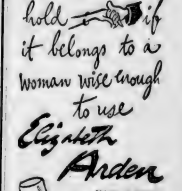 hold if
it belongs to a
woman wise enough
to use
Elizabeth
Arden